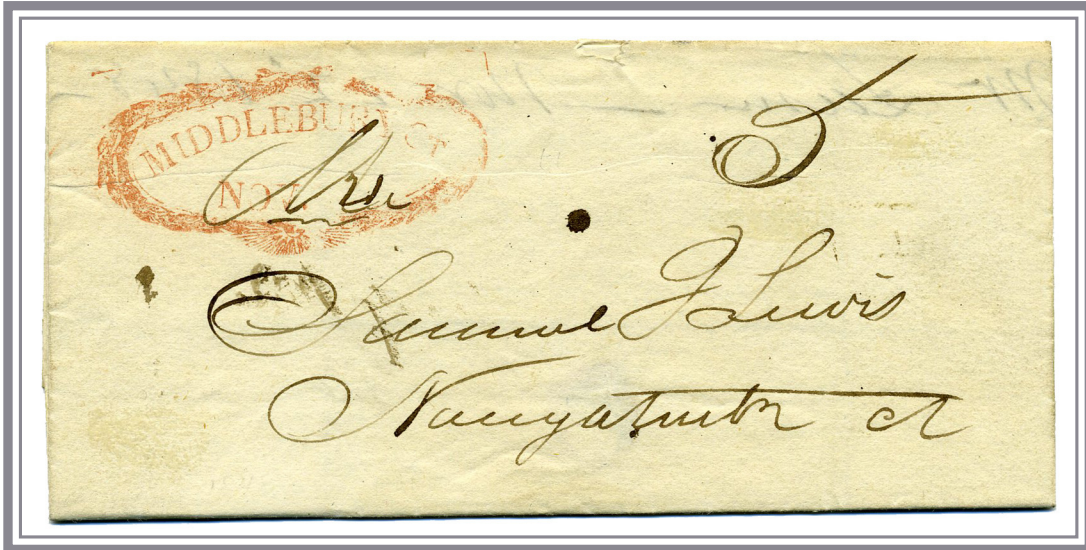 MIDDLEBURY CT
NOV.
5
Mr
Samuel J Lewis
Naugatuck ct